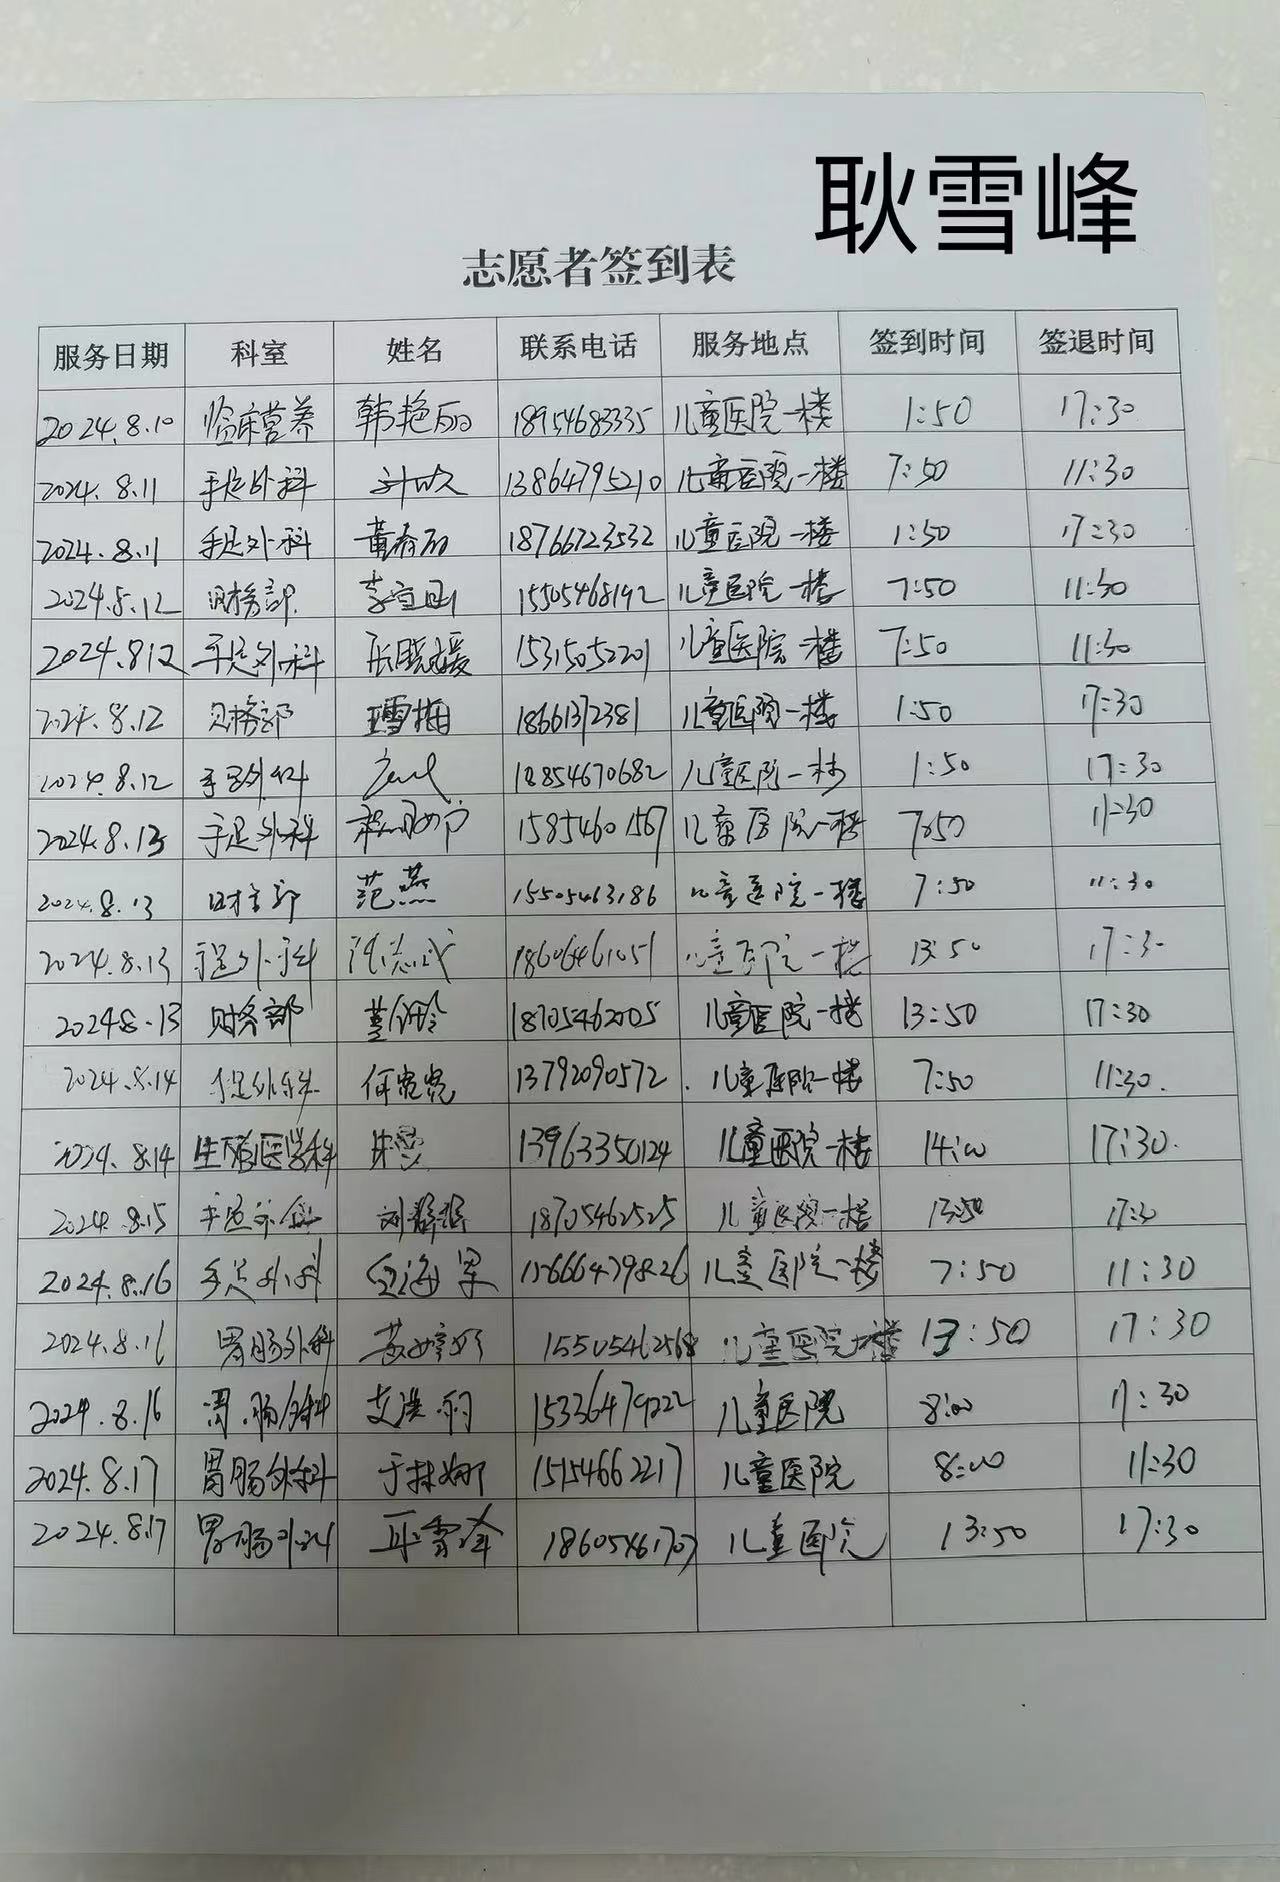 耿雪峰
志愿者签到表
服务日期 科室 姓名 联系电话 服务地点 签到时间 签退时间
2024.8.10 临床营养 韩艳丽 18954683335 儿童医院一楼 1:50 17:30
2024.8.11 手足外科 13864795210 儿童医院一楼 7:50 11:30
2024.8.11 手足外科 董春丽 18766723532 儿童医院一楼 1:50 17:30
2024.8.12 财务部 15505468192 儿童医院一楼 7:50 11:30
2024.8.12 手足外科 张晓媛 15315052201 儿童医院一楼 7:50 11:30
2024.8.12 财务部 王雪梅 18661372381 儿童医院一楼 1:50 17:30
2024.8.12 手足外科 18854670682 儿童医院一楼 1:50 17:30
2024.8.13 手足外科 15854601567 儿童医院一楼 7:50 11:30
2024.8.13 财务部 范燕 15505463186 儿童医院一楼 7:50 11:30
2024.8.13 手足外科 18606461051 儿童医院一楼 13:50 17:30
2024.8.13 财务部 18705462005 儿童医院一楼 13:50 17:30
2024.8.14 手足外科 何亮亮 13792090572 儿童医院一楼 7:50 11:30
2024.8.14 生殖医学科 朱曼 13963350124 儿童医院一楼 14:00 17:30
2024.8.15 手足外科 18705462525 儿童医院一楼 13:50 17:30
2024.8.16 手足外科 儿童医院一楼 7:50 11:30
2024.8.16 胃肠外科 15505462568 儿童医院一楼 13:50 17:30
2024.8.16 胃肠外科 15336479222 儿童医院 8:00 11:30
2024.8.17 胃肠外科 于林娜 15154662217 儿童医院 8:00 11:30
2024.8.17 胃肠外科 耿雪峰 儿童医院 13:50 17:30